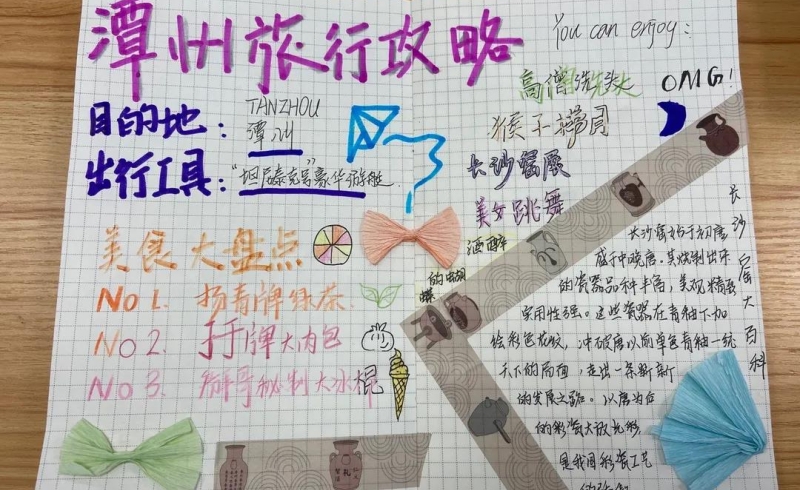 潭州旅行攻略
目的地：
TANZHOU
潭州
出行工具：
"坦尼泰克号"豪华游艇
美食大盘点
No 1. 扬青牌绿茶
No 2. 手牌大肉包
No 3. 秘制大冰棍
You can enjoy：
高僧洗头
OMG！
猴子捞月
长沙窑展
美女跳舞
酒醉
的蝴
蝶
长沙窑大百科
长沙窑始于初唐
盛于中晚唐，其烧制出来
的瓷器品种丰富，美观精致
实用性强。这些瓷器在青釉下加
绘彩色花纹，冲破唐以前单色青釉一统
天下的局面，走出一条崭新
的发展之路。以唐为后
的彩瓷大放光彩
是我国彩瓷工艺